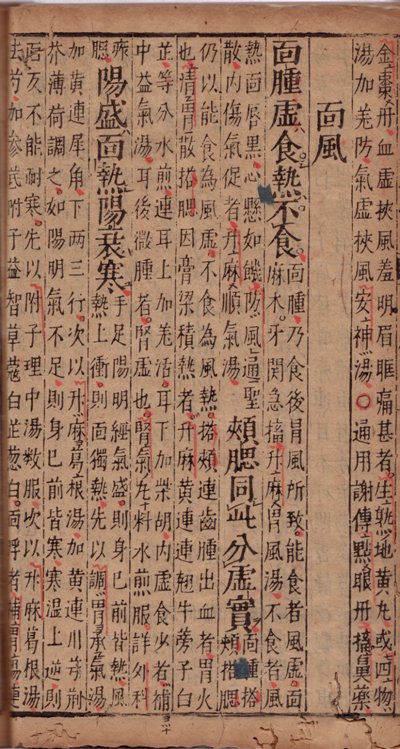 金棗丹血虛挾風羞明眉眶痛甚者生熟地黃丸或四物
湯加羌防氣虛挾風安神湯○通用謝傳點眼丹搐鼻藥
面風
面腫虛食熱不食
面腫乃食後冒風所致能食者風虛面
麻木牙關急搐升麻胃風湯不食者風
熱面唇黑心懸如饑防風通聖
散內傷氣促者升麻順氣湯
頰腮同此分虛實
面腫搭
頰搭腮
仍以能食為風虛不食為風熱搭頰連齒腫出血者胃火
也清胃散搭腮因膏梁積熱者升麻黃連連翹牛蒡子白
芷等分水煎連耳上加羌活耳下加柴胡內虛食少者補
中益氣湯耳後微腫者腎虛也腎氣丸料水煎服詳外科
陽盛面熱陽衰寒
手足陽明經氣盛則身已前皆熱風
熱上衝則面獨熱先以調胃承氣湯
加黃連犀角下兩三行次以升麻葛根湯加黃連川芎荊
芥薄荷調之如陽明氣不足則身已前皆寒寒濕上逆則
面亦不能耐寒先以附子理中湯數服次以升麻葛根湯
去芍加參芪附子益智草蔻白芷葱白面浮者補胃湯連